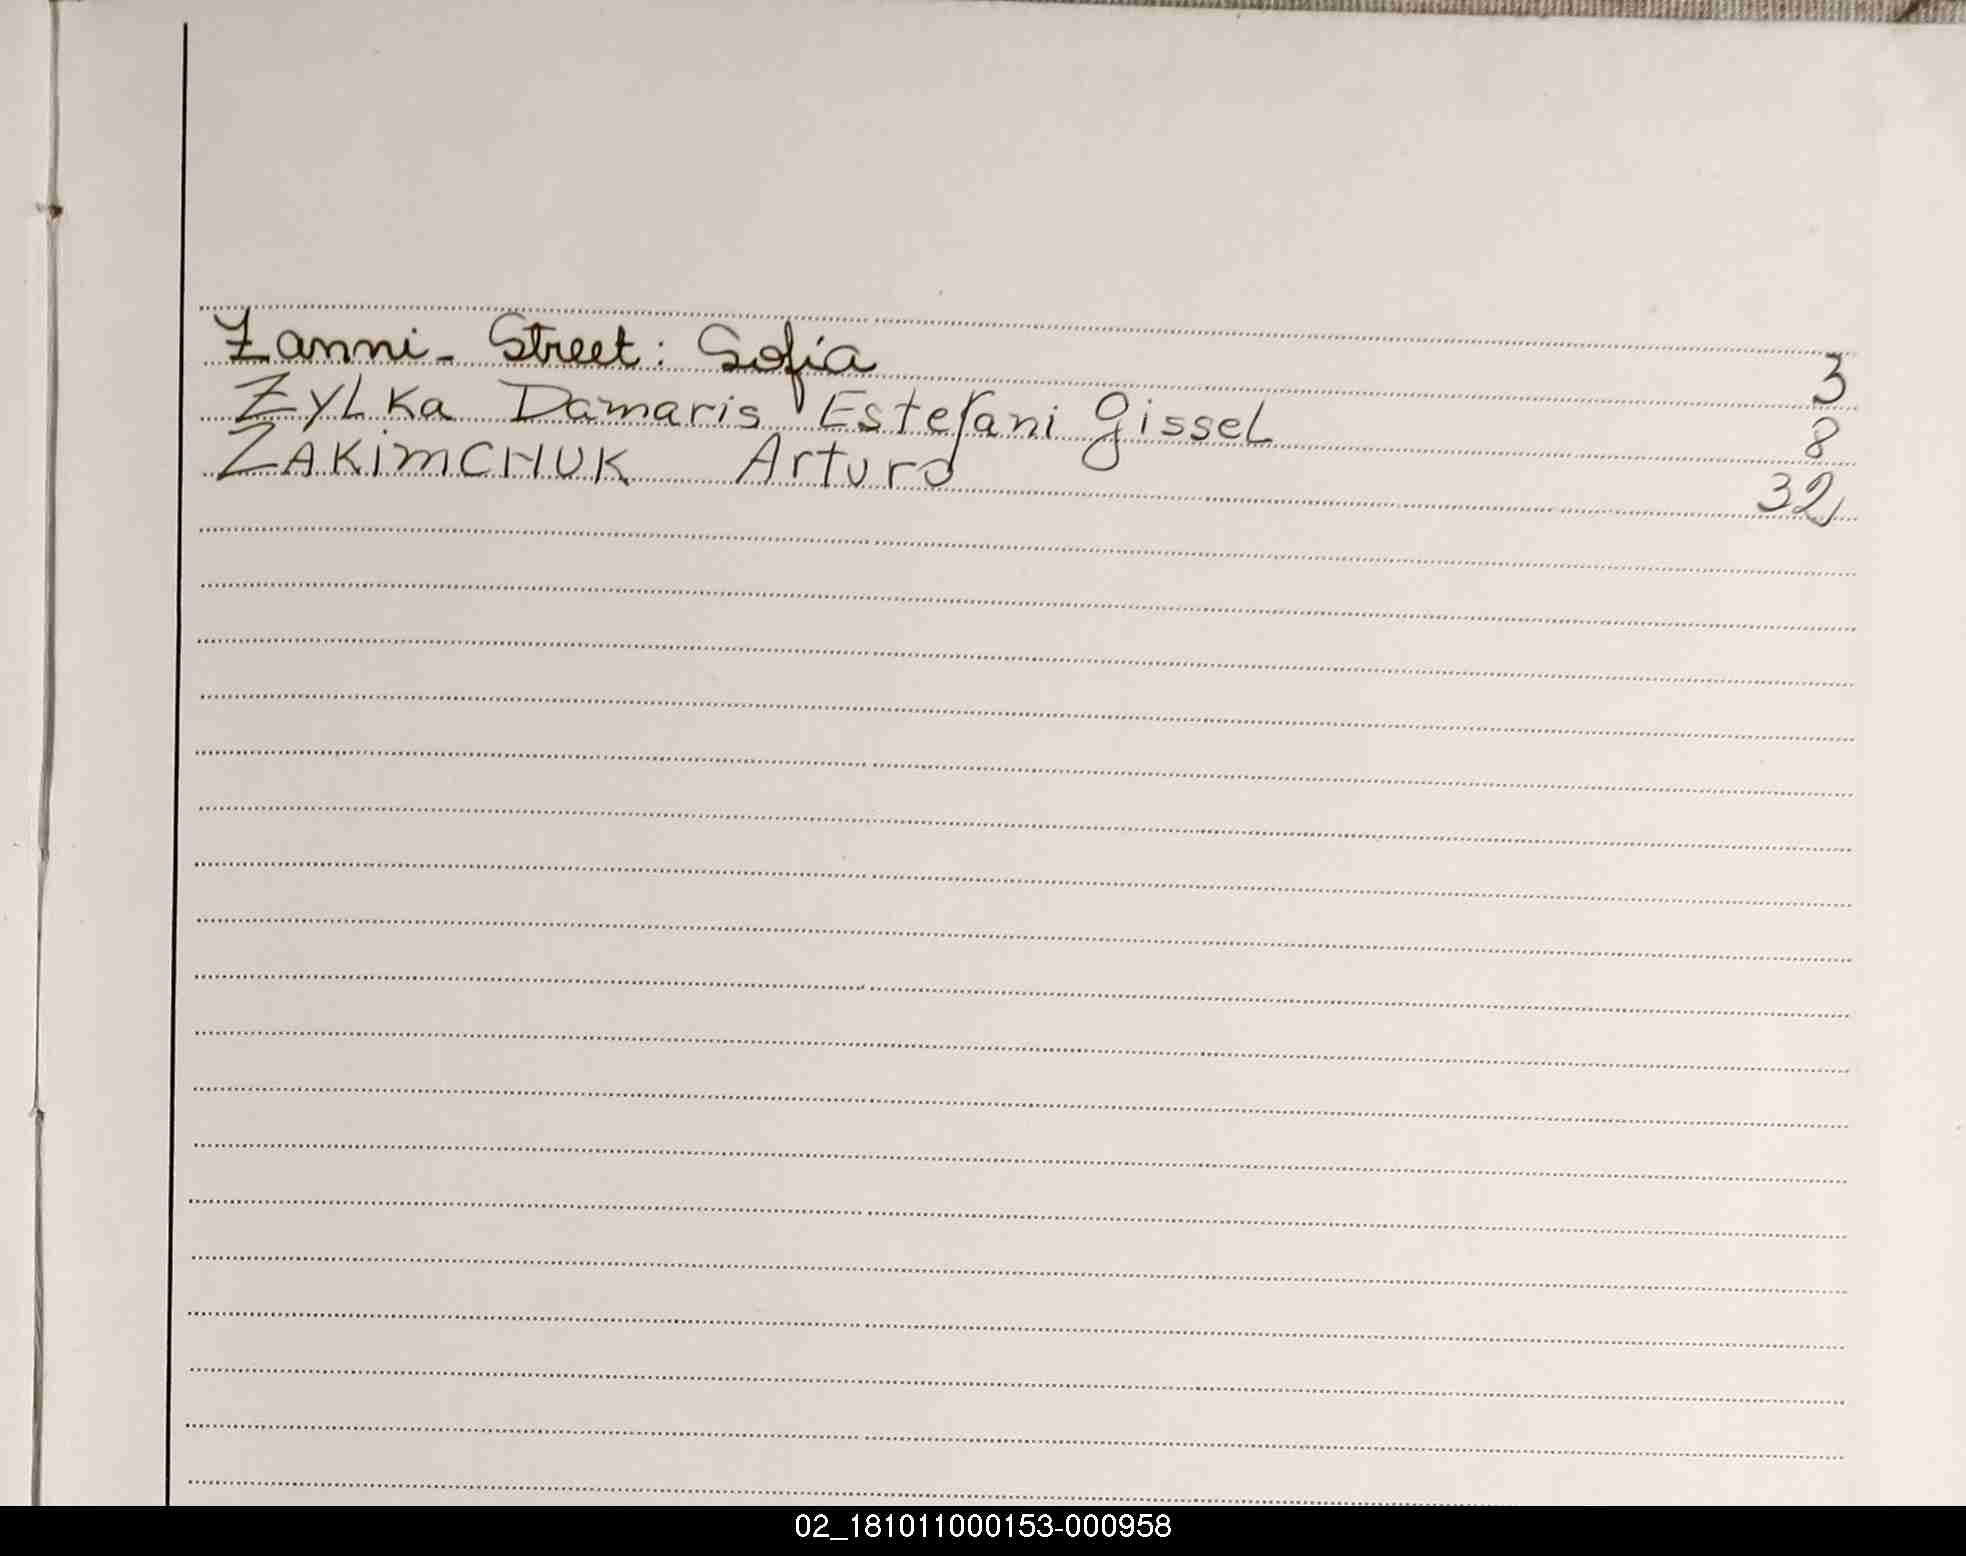 Zanni - Street: Sofia 3
Zylka Damaris Estefani Gissel 8
ZAKimCHUK Arturo 32
02_181011000153-000958